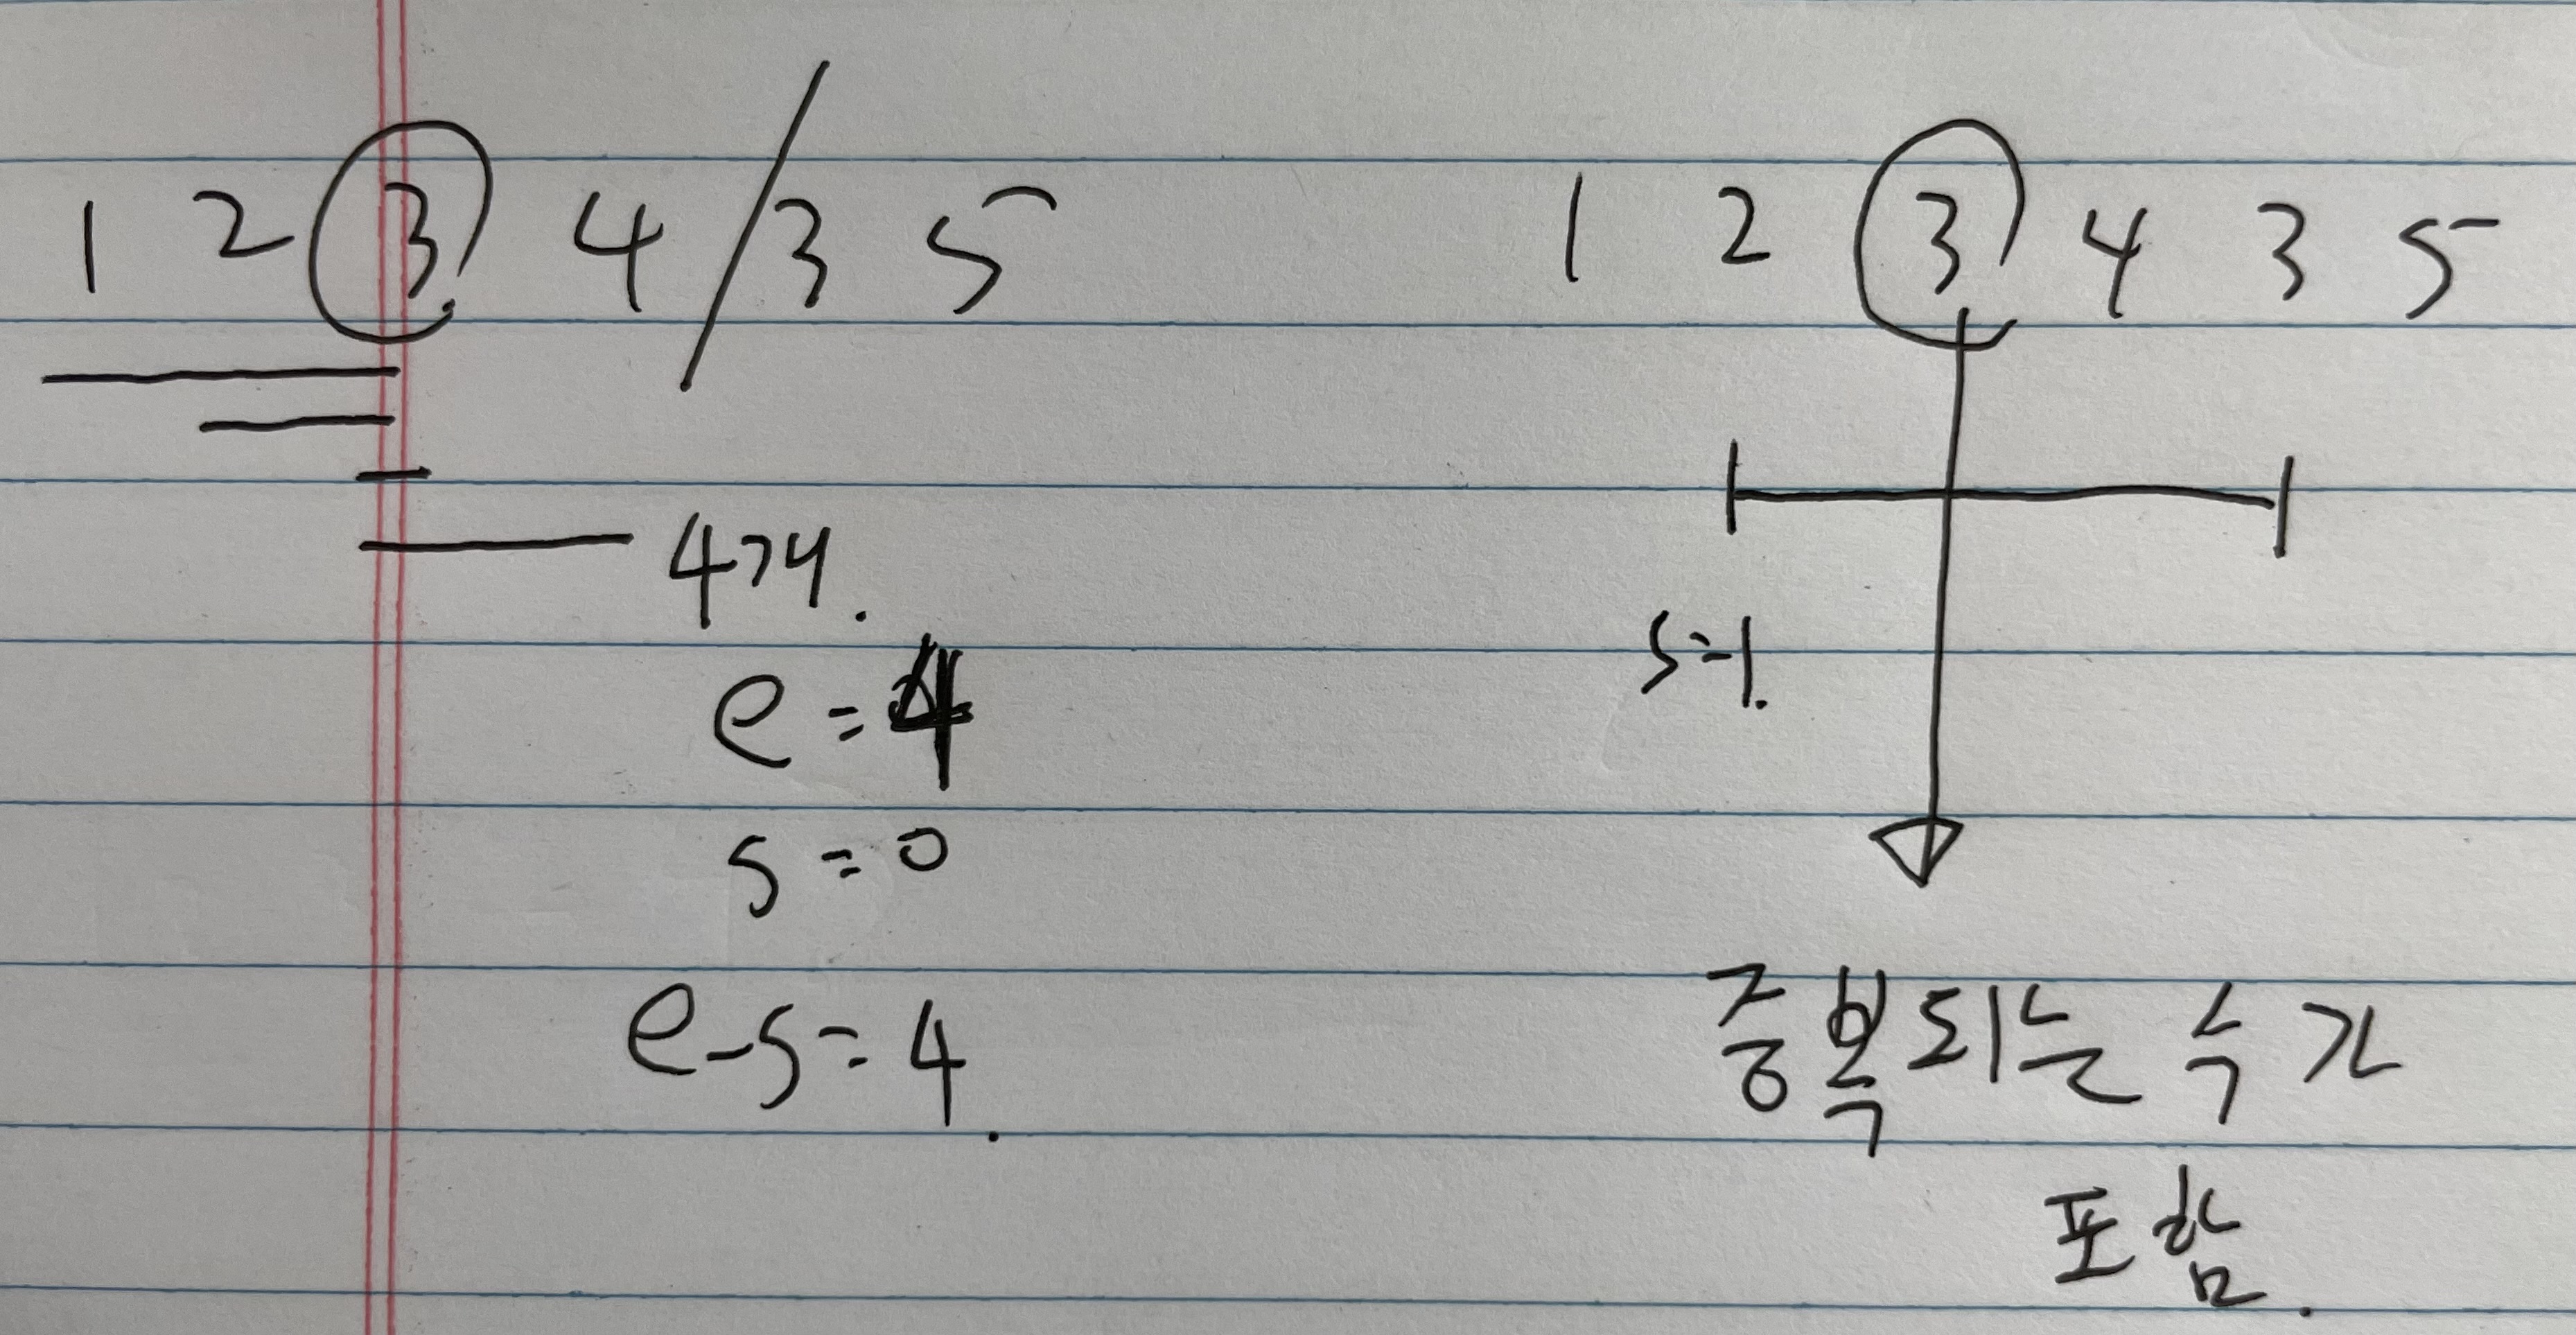 1 2 3 4 / 3 5
4개.
e = 4
s = 0
e-s = 4.
1 2 3 4 3 5
s=1.
중복되는 수가
포함.